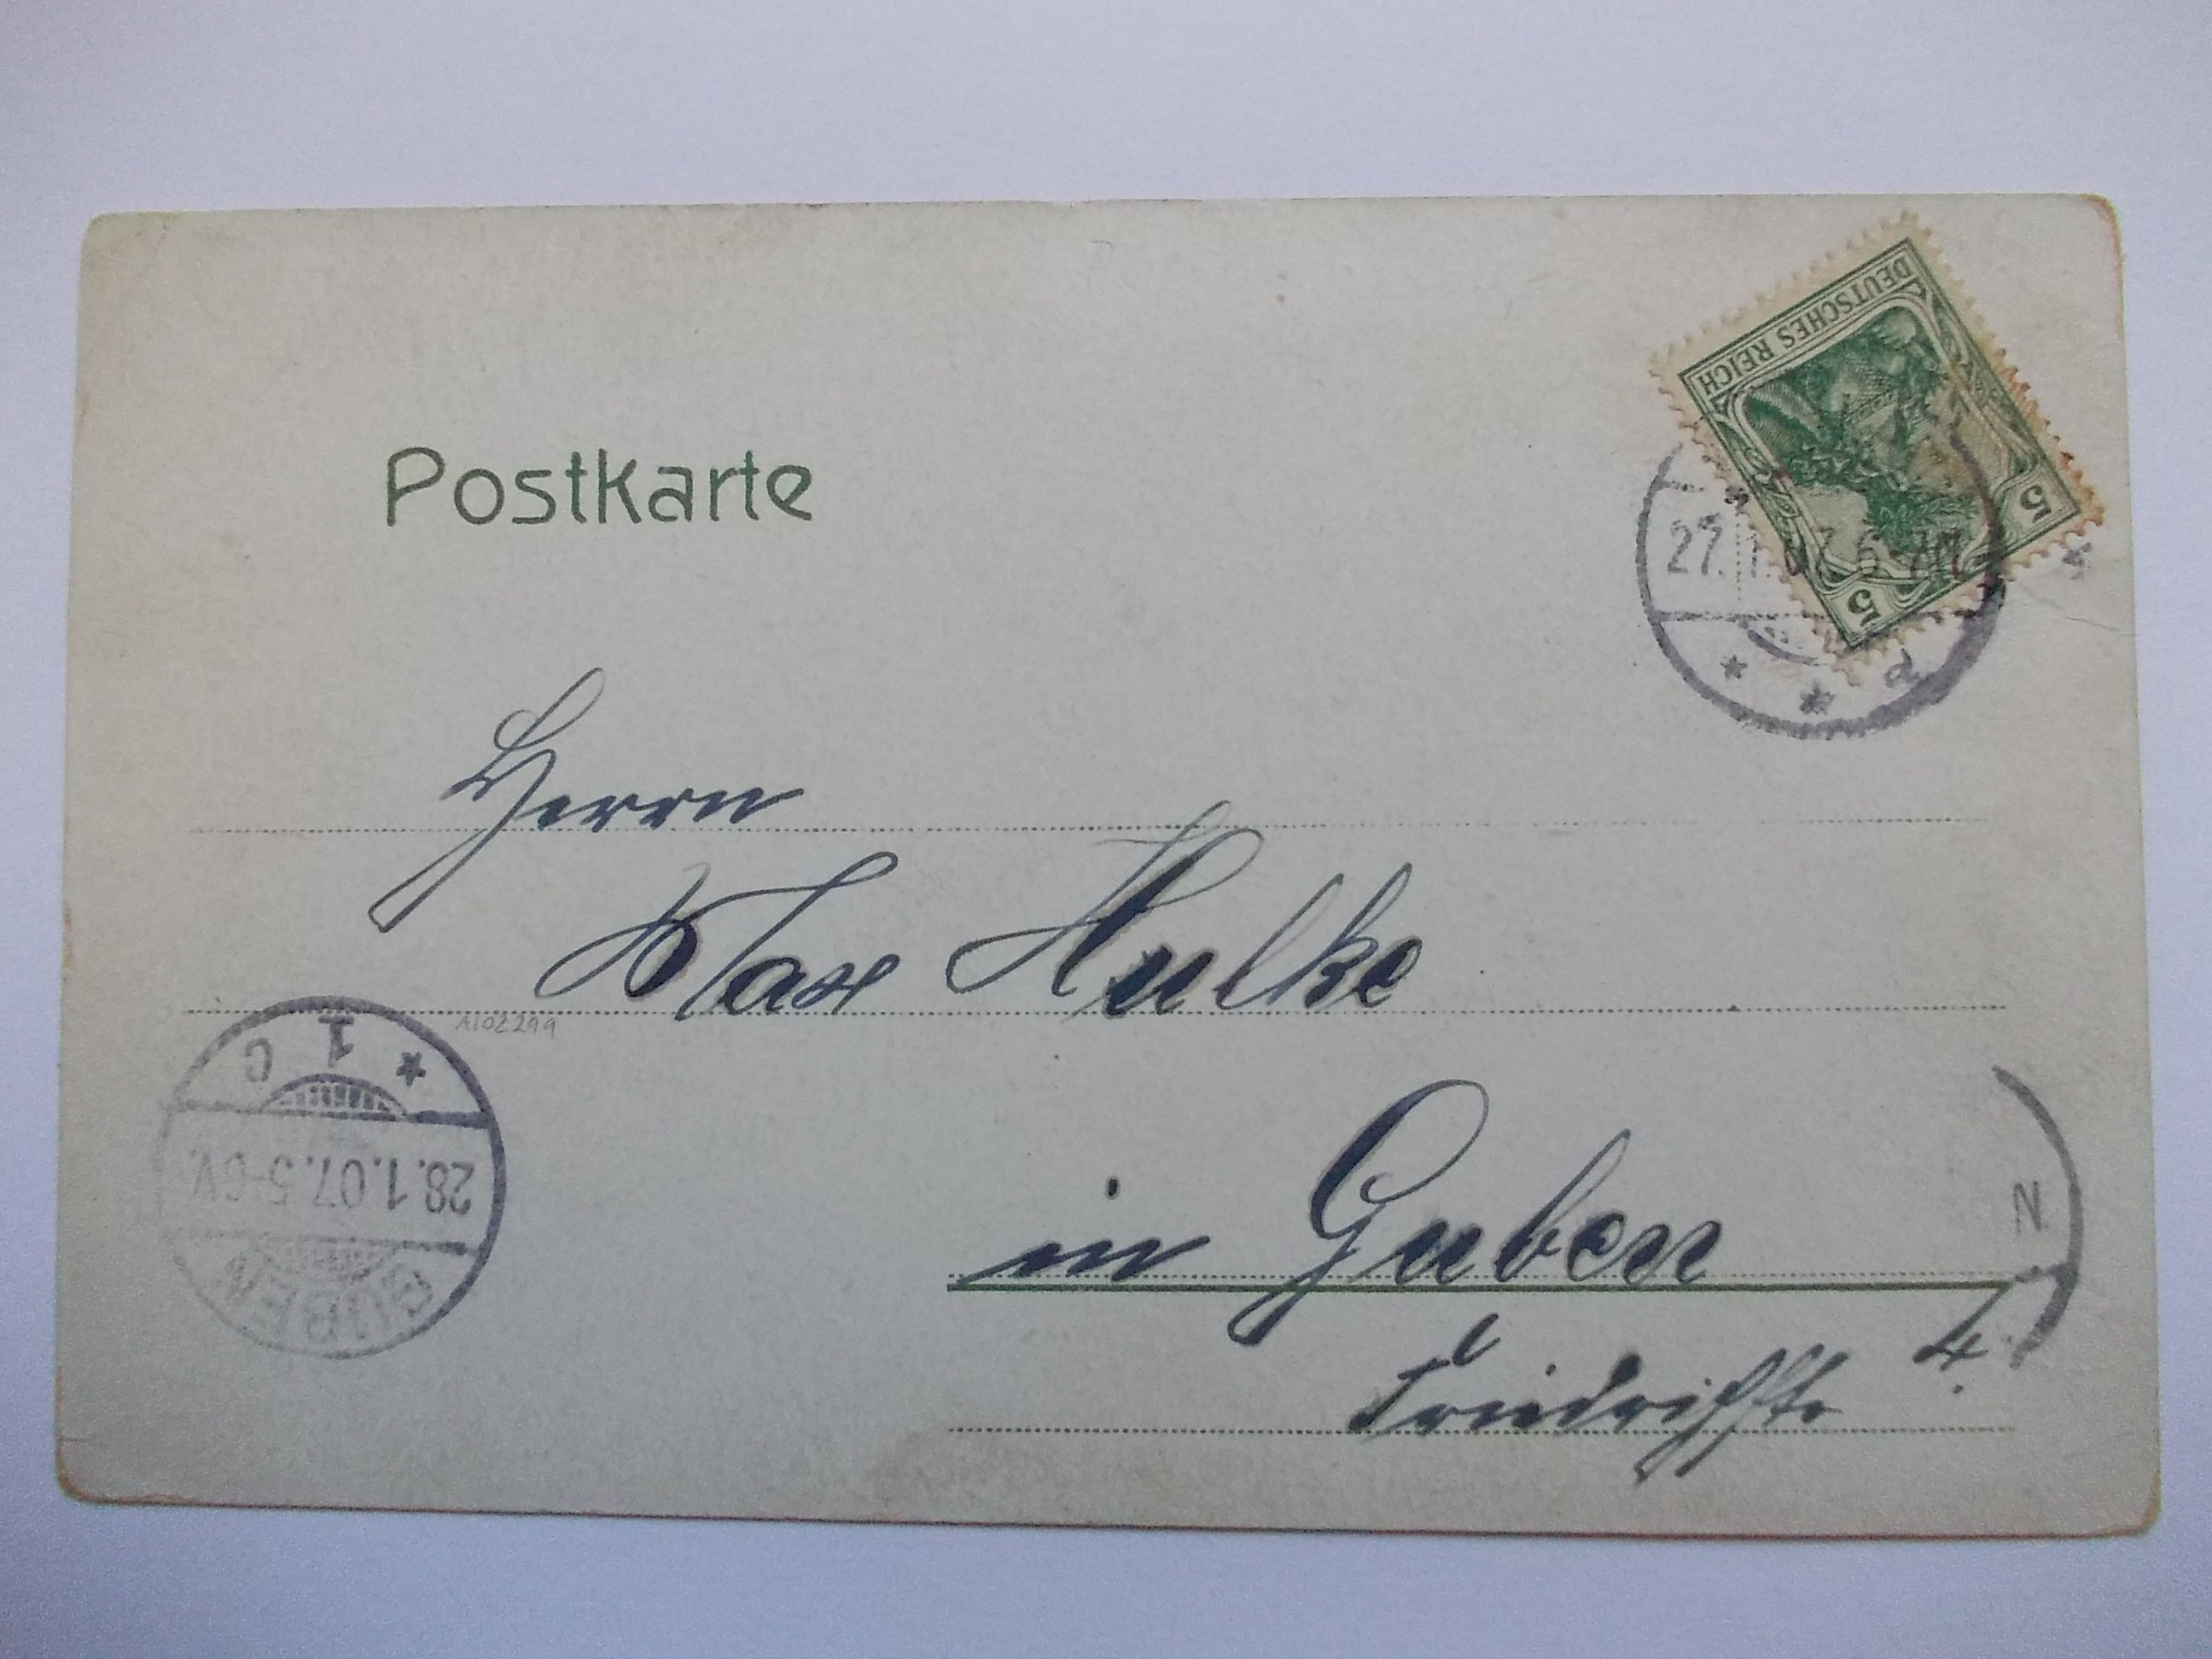 DEUTSCHES REICH
5 5
Postkarte
27.1.07. 6-7N.
* * d
Herrn
Max Hulke
A102299
* 1 c
28.1.07.5-6V.
GUBEN
in Guben
N.
4.
Friedrichstr